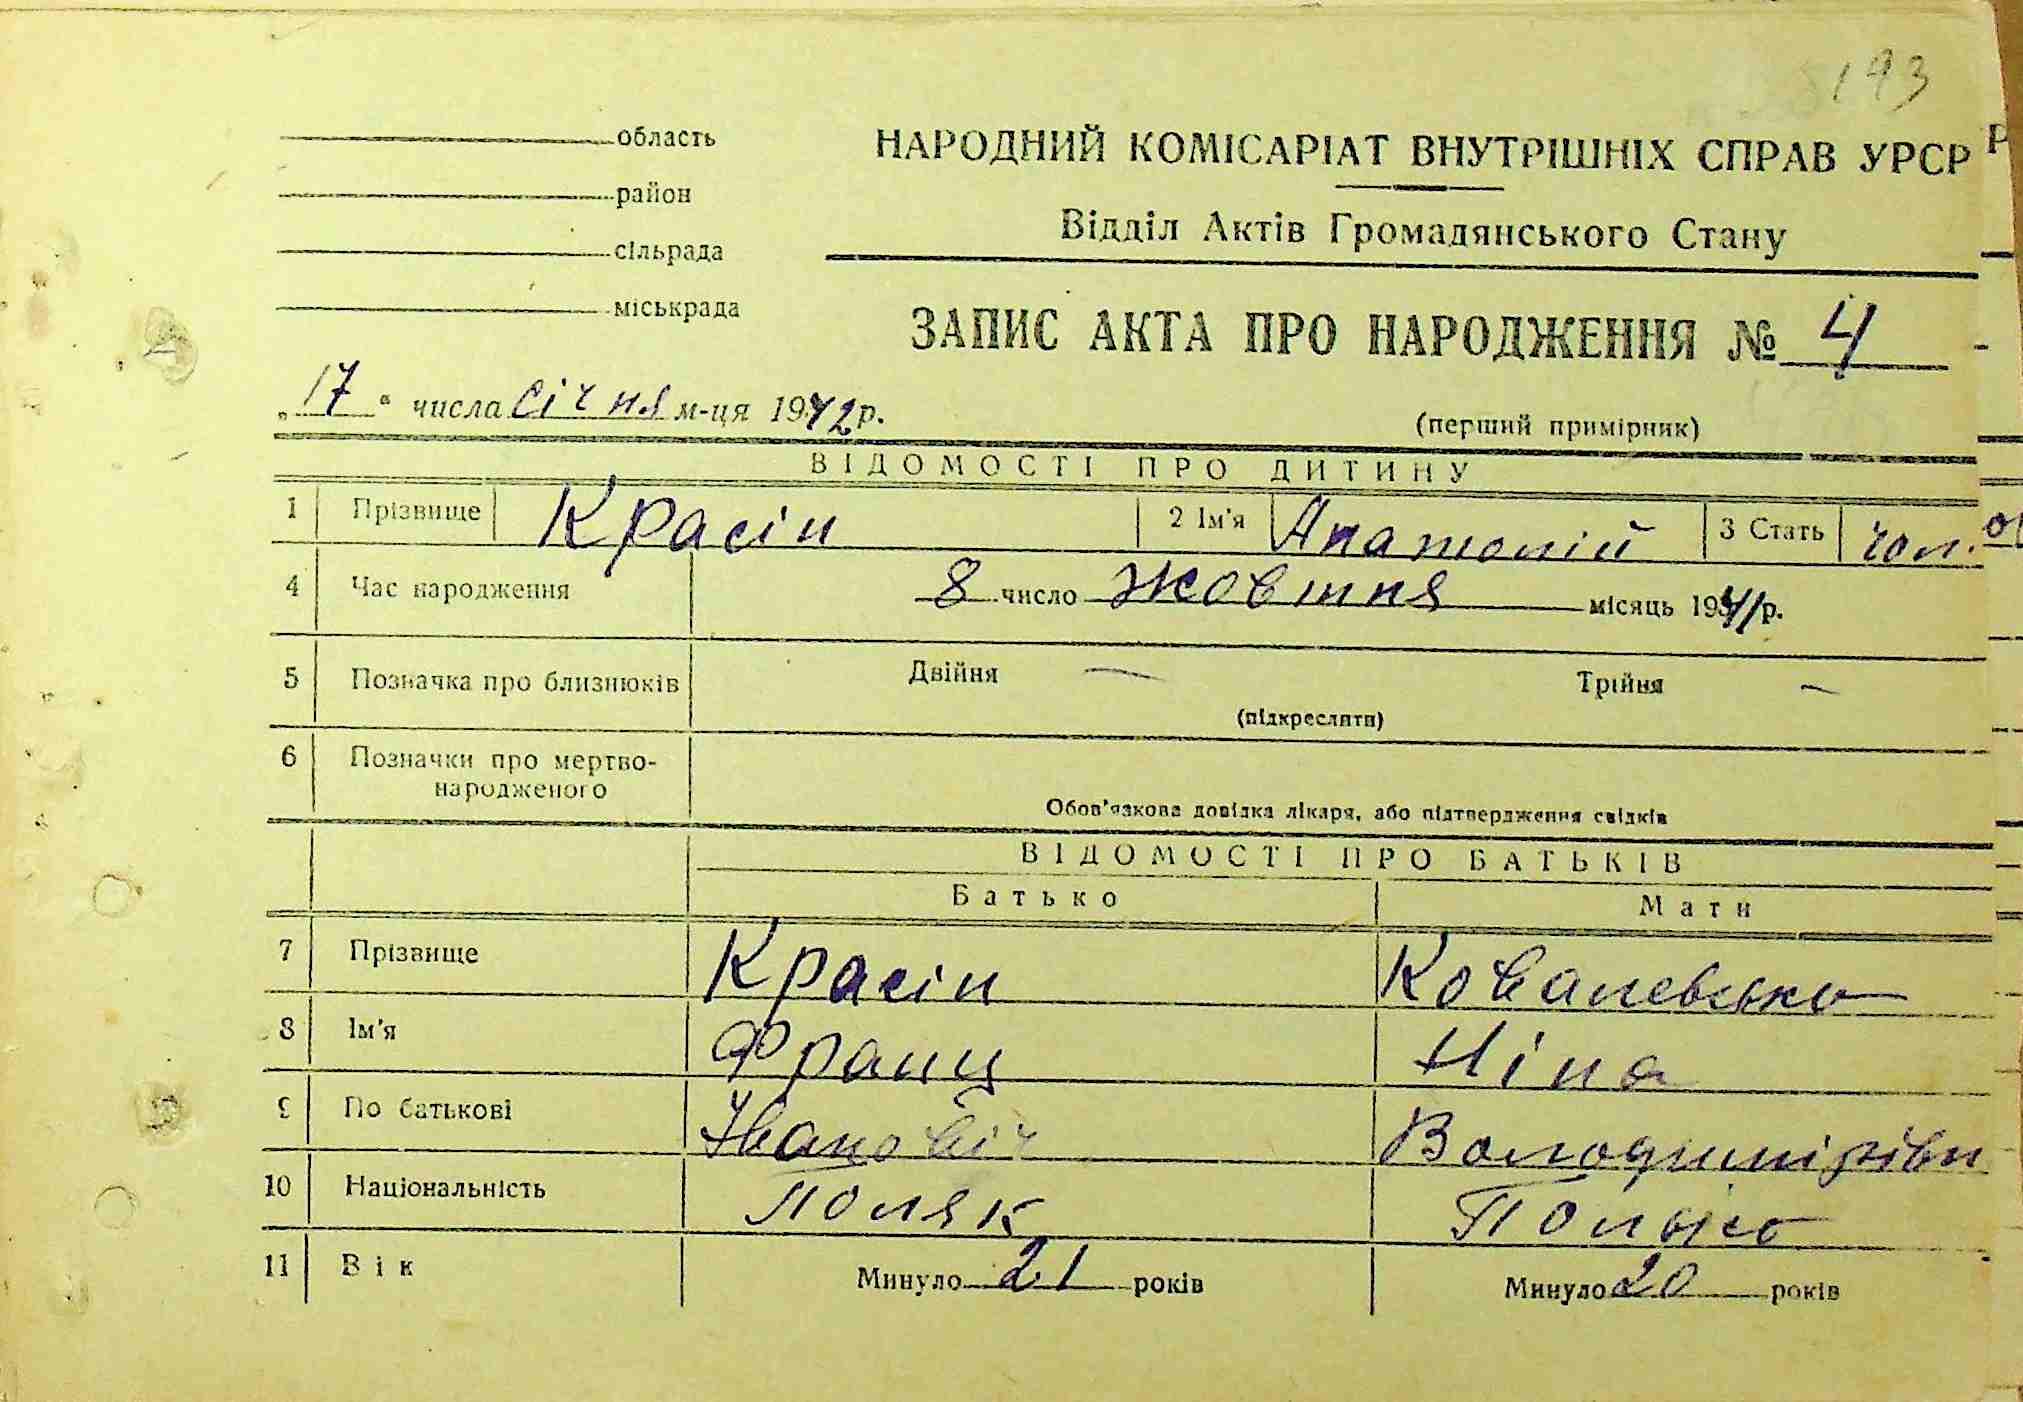 193
область
НАРОДНИЙ КОМІСАРІАТ ВНУТРІШНІХ СПРАВ УРСР
район
Відділ Актів Громадянського Стану
сільрада
міськрада
ЗАПИС АКТА ПРО НАРОДЖЕННЯ № 4
„17“ числа січня м-ця 1942 р.
(перший примірник)
ВІДОМОСТІ ПРО ДИТИНУ
1 Прізвище Красін 2 Ім'я Анатолій 3 Стать чол.
4 Час народження 8 число Жовтня місяць 1941 р.
5 Позначка про близнюків Двійня — Трійня —
(підкреслити)
6 Позначки про мертво-
народженого
Обов'язкова довідка лікаря, або підтвердження свідків
ВІДОМОСТІ ПРО БАТЬКІВ
Батько Мати
7 Прізвище Красін Ковалевсько
8 Ім'я Франц Ніна
9 По батькові Іванович Володимирівн
10 Національність Поляк Полько
11 Вік Минуло 21 років Минуло 20 років